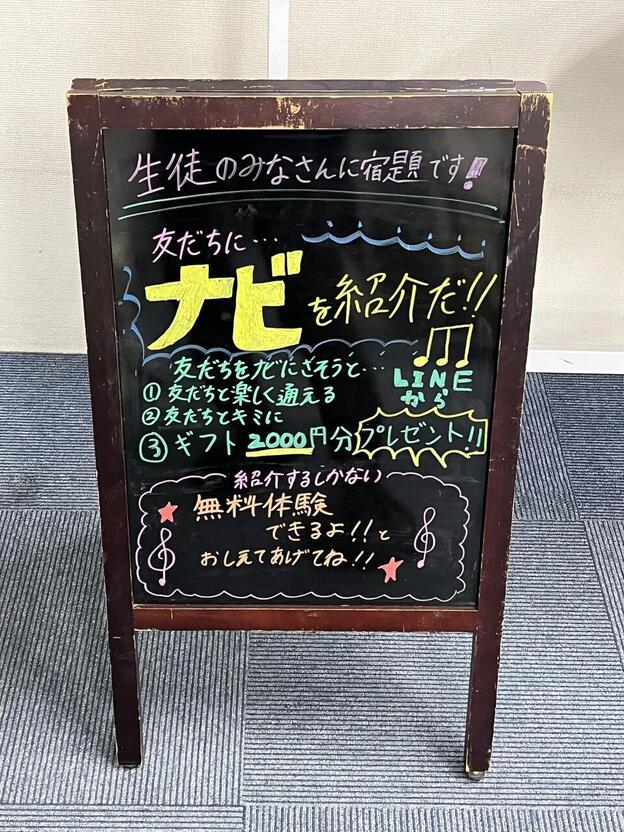 生徒のみなさんに宿題です!!
友だちに…
ナビを紹介だ!!
友だちをナビにさそうと…
LINE
から
①友だちと楽しく通える
②友だちとキミに
③ギフト2000円分プレゼント!!
紹介するしかない
無料体験
できるよ!!と
おしえてあげてね!!